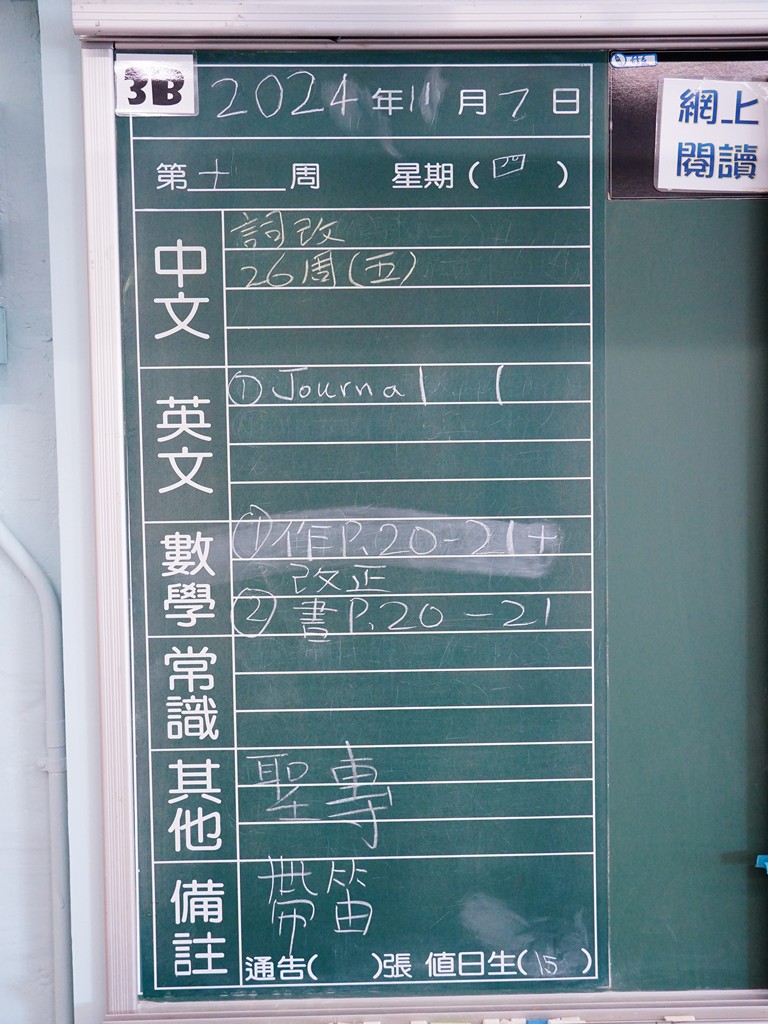 3B 2024年11月7日
第十周 星期(四)
網上
閱讀
中文
詞改
26周(五)
英文
① Journal 1
數學
① 作P.20-21+
改正
② 書P.20-21
常識
其他
聖專
備註
帶笛
通告( )張 值日生(15)